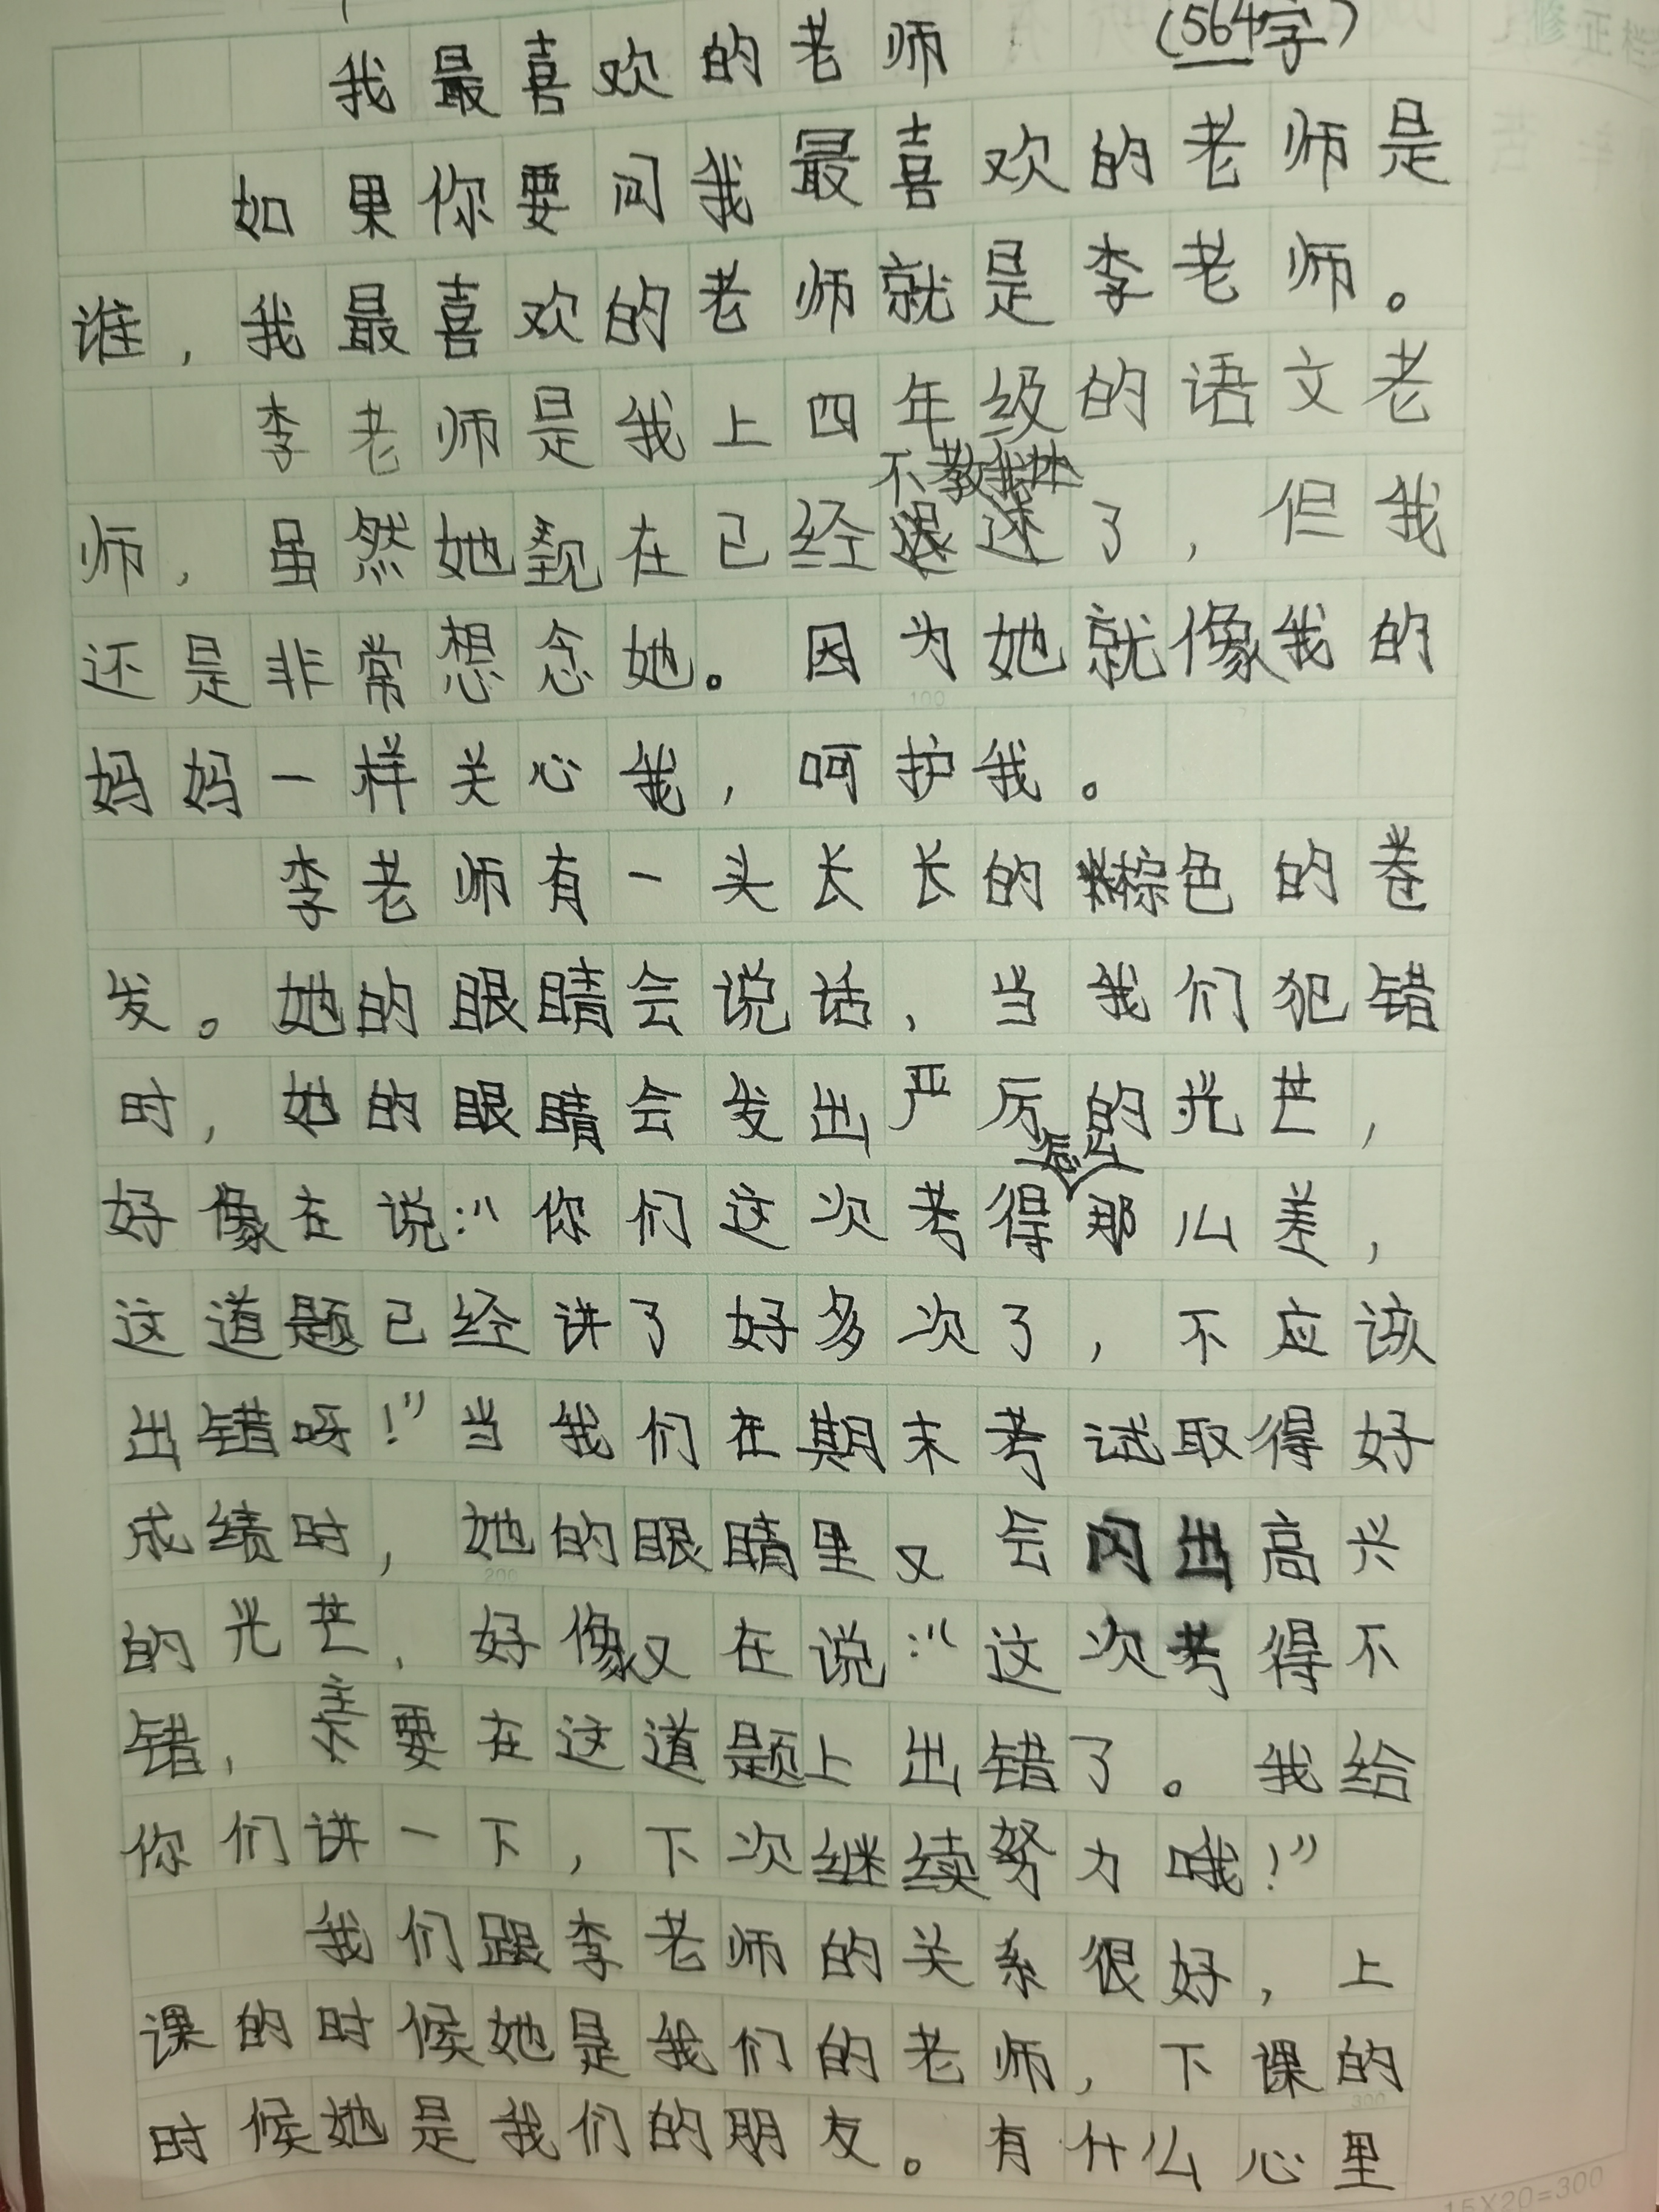 我最喜欢的老师 (564字)
如果你要问我最喜欢的老师是
谁，我最喜欢的老师就是李老师。
李老师是我上四年级的语文老
不教我
师，虽然她现在已经了，但我
还是非常想念她。因为她就像我的
妈妈一样关心我，呵护我。
李老师有一头长长的棕色的卷
发。她的眼睛会说话，当我们犯错
时，她的眼睛会发出严厉的光芒，
好像在说：“你们这次考得那么差，
这道题已经讲了好多次了，不应该
出错呀！”当我们在期末考试取得好
成绩时，她的眼睛里又会闪出高兴
的光芒，好像又在说：“这次考得不
错，主要在这道题上出错了。我给
你们讲一下，下次继续努力哦！”
我们跟李老师的关系很好，上
课的时候她是我们的老师，下课的
时候她是我们的朋友。有什么心里
15X20=300